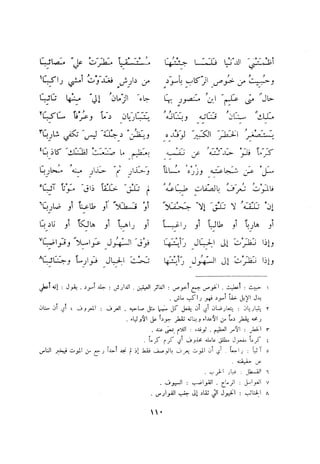 أظمتنيَ الدنيا فلما جئتها مستسقياً مطرت عليّ مصائبا
وحبيت من خوص الركاب بأسود من دارش فغدوت أمشي راكبا١
حال متى علم ابن منصور بها جاء الزمان إليّ منها تائبا
ملك سنان قناته وبنانه يتباريان دماً وعرفاً ساكبا٢
يستصغر الخطر الكبير لوفده ويظن دجلة ليس تكفي شاربا٣
كرماً فلو حدثته عن نفسه بعظيم ما صنعت لظنك كاذبا٤
سل عن شجاعته وزره مسالماً وحذار ثم حذار منه محاربا
فالموت تعرف بالصفات طباعه لم تلق خلقاً ذاق موتاً آئبا٥
إن تلقه لا تلق إلا جحفلاً أو قسطلاً أو طاعناً أو ضاربا٦
أو هارباً أو طالباً أو راغباً أو راهباً أو هالكاً أو نادبا
وإذا نظرت إلى الجبال رأيتها فوق السهول عواسلاً وقواضبا٧
وإذا نظرت إلى السهول رأيتها تحت الجبال فوارساً وجنائبا٨
١ حبيت : أعطيت . الخوص جمع أخوص : الغائر العينين . الدارش : جلد أسود . يقول : إنه أعطي
بدل الإبل خفاً أسود فهو راكب ماش .
٢ يتباريان : يتعارضان أي أن يفعل كل منهما مثل صاحبه . العرف : المعروف ؛ أي أن سنان
رمحه يقطر دماً من الأعداء وبنانه تقطر جوداً على الأولياء .
٣ الخطر : الأمر العظيم . لوفده : اللام بمعنى عند .
٤ كرماً مفعول مطلق عامله محذوف أي كرم كرماً .
٥ آئباً : راجعاً . أي أن الموت يعرف بالوصف فقط إذ لم نجد أحداً رجع من الموت فيخبر الناس
عن حقيقته .
٦ القسطل : غبار الحرب .
٧ العواسل : الرماح . القواضب : السيوف .
٨ الجنائب : الخيول التي تقاد إلى جنب الفوارس .
١١٠